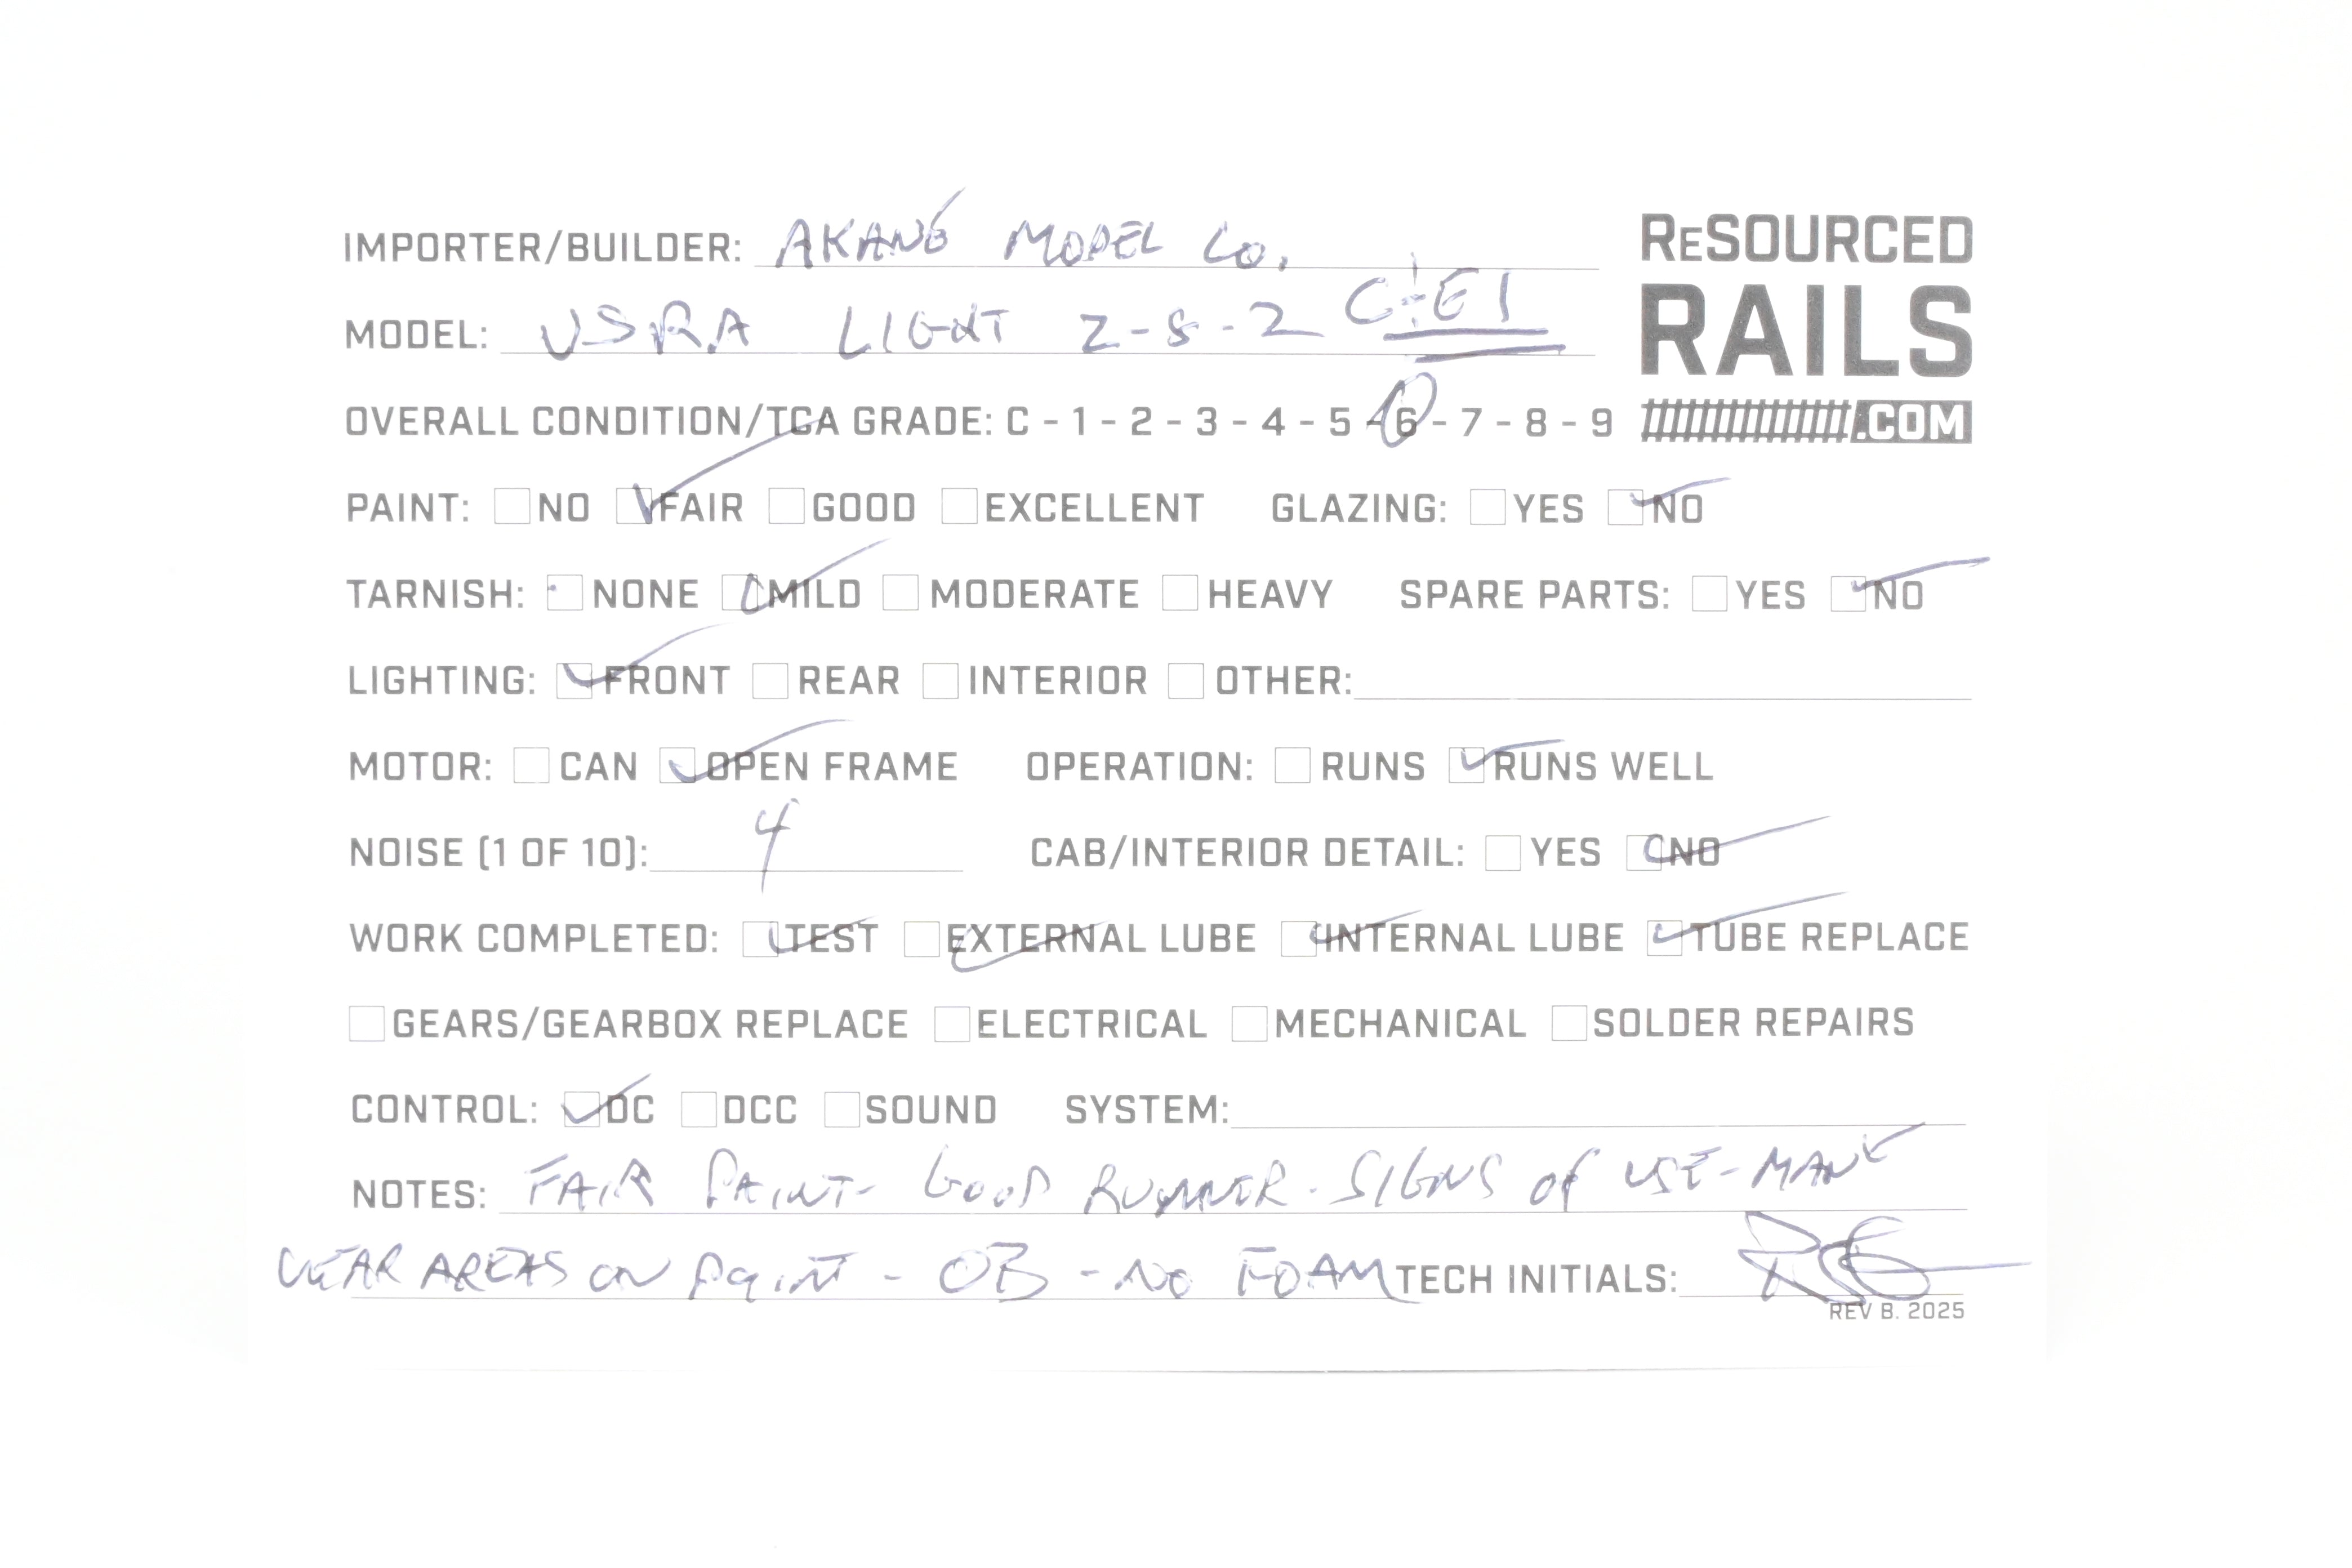 IMPORTER/BUILDER: AKANÉ MODEL Co.
RESOURCED
RAILS
.COM
MODEL: USRA LIGHT 2-8-2 C+EI
OVERALL CONDITION/TCA GRADE: C - 1 - 2 - 3 - 4 - 5 - 6 - 7 - 8 - 9
PAINT: NO FAIR GOOD EXCELLENT GLAZING: YES NO
TARNISH: NONE MILD MODERATE HEAVY SPARE PARTS: YES NO
LIGHTING: FRONT REAR INTERIOR OTHER:
MOTOR: CAN OPEN FRAME OPERATION: RUNS RUNS WELL
NOISE (1 OF 10): 4 CAB/INTERIOR DETAIL: YES NO
WORK COMPLETED: TEST EXTERNAL LUBE INTERNAL LUBE TUBE REPLACE
GEARS/GEARBOX REPLACE ELECTRICAL MECHANICAL SOLDER REPAIRS
CONTROL: DC DCC SOUND SYSTEM:
NOTES: FAIR PAINT- GOOD RUNNER - SIGNS OF USE- MANY
WEAR AREAS ON PAINT - OB - NO FOAM TECH INITIALS:
REV B. 2025